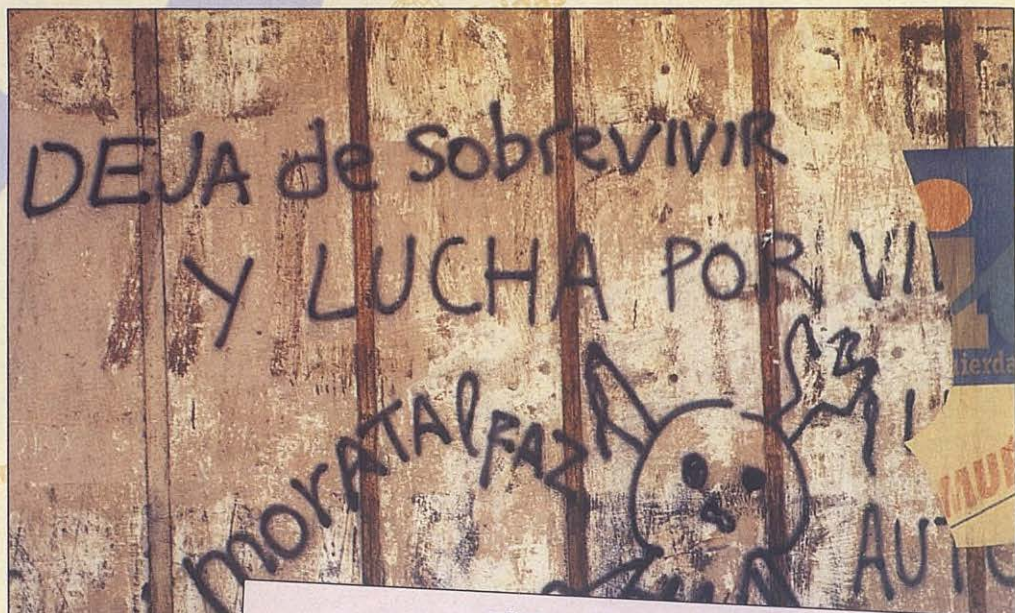 DEJA de SobreVIVIR
Y LUCHA POR VI
MORATALAZ
AUTO
ierda